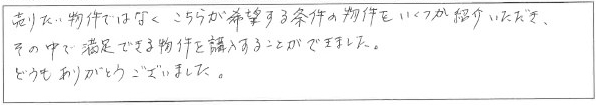 売りたい物件ではなく こちらが希望する条件の物件をいくつか紹介いただき、
その中で満足できる物件を購入することができました。
どうもありがとうございました。